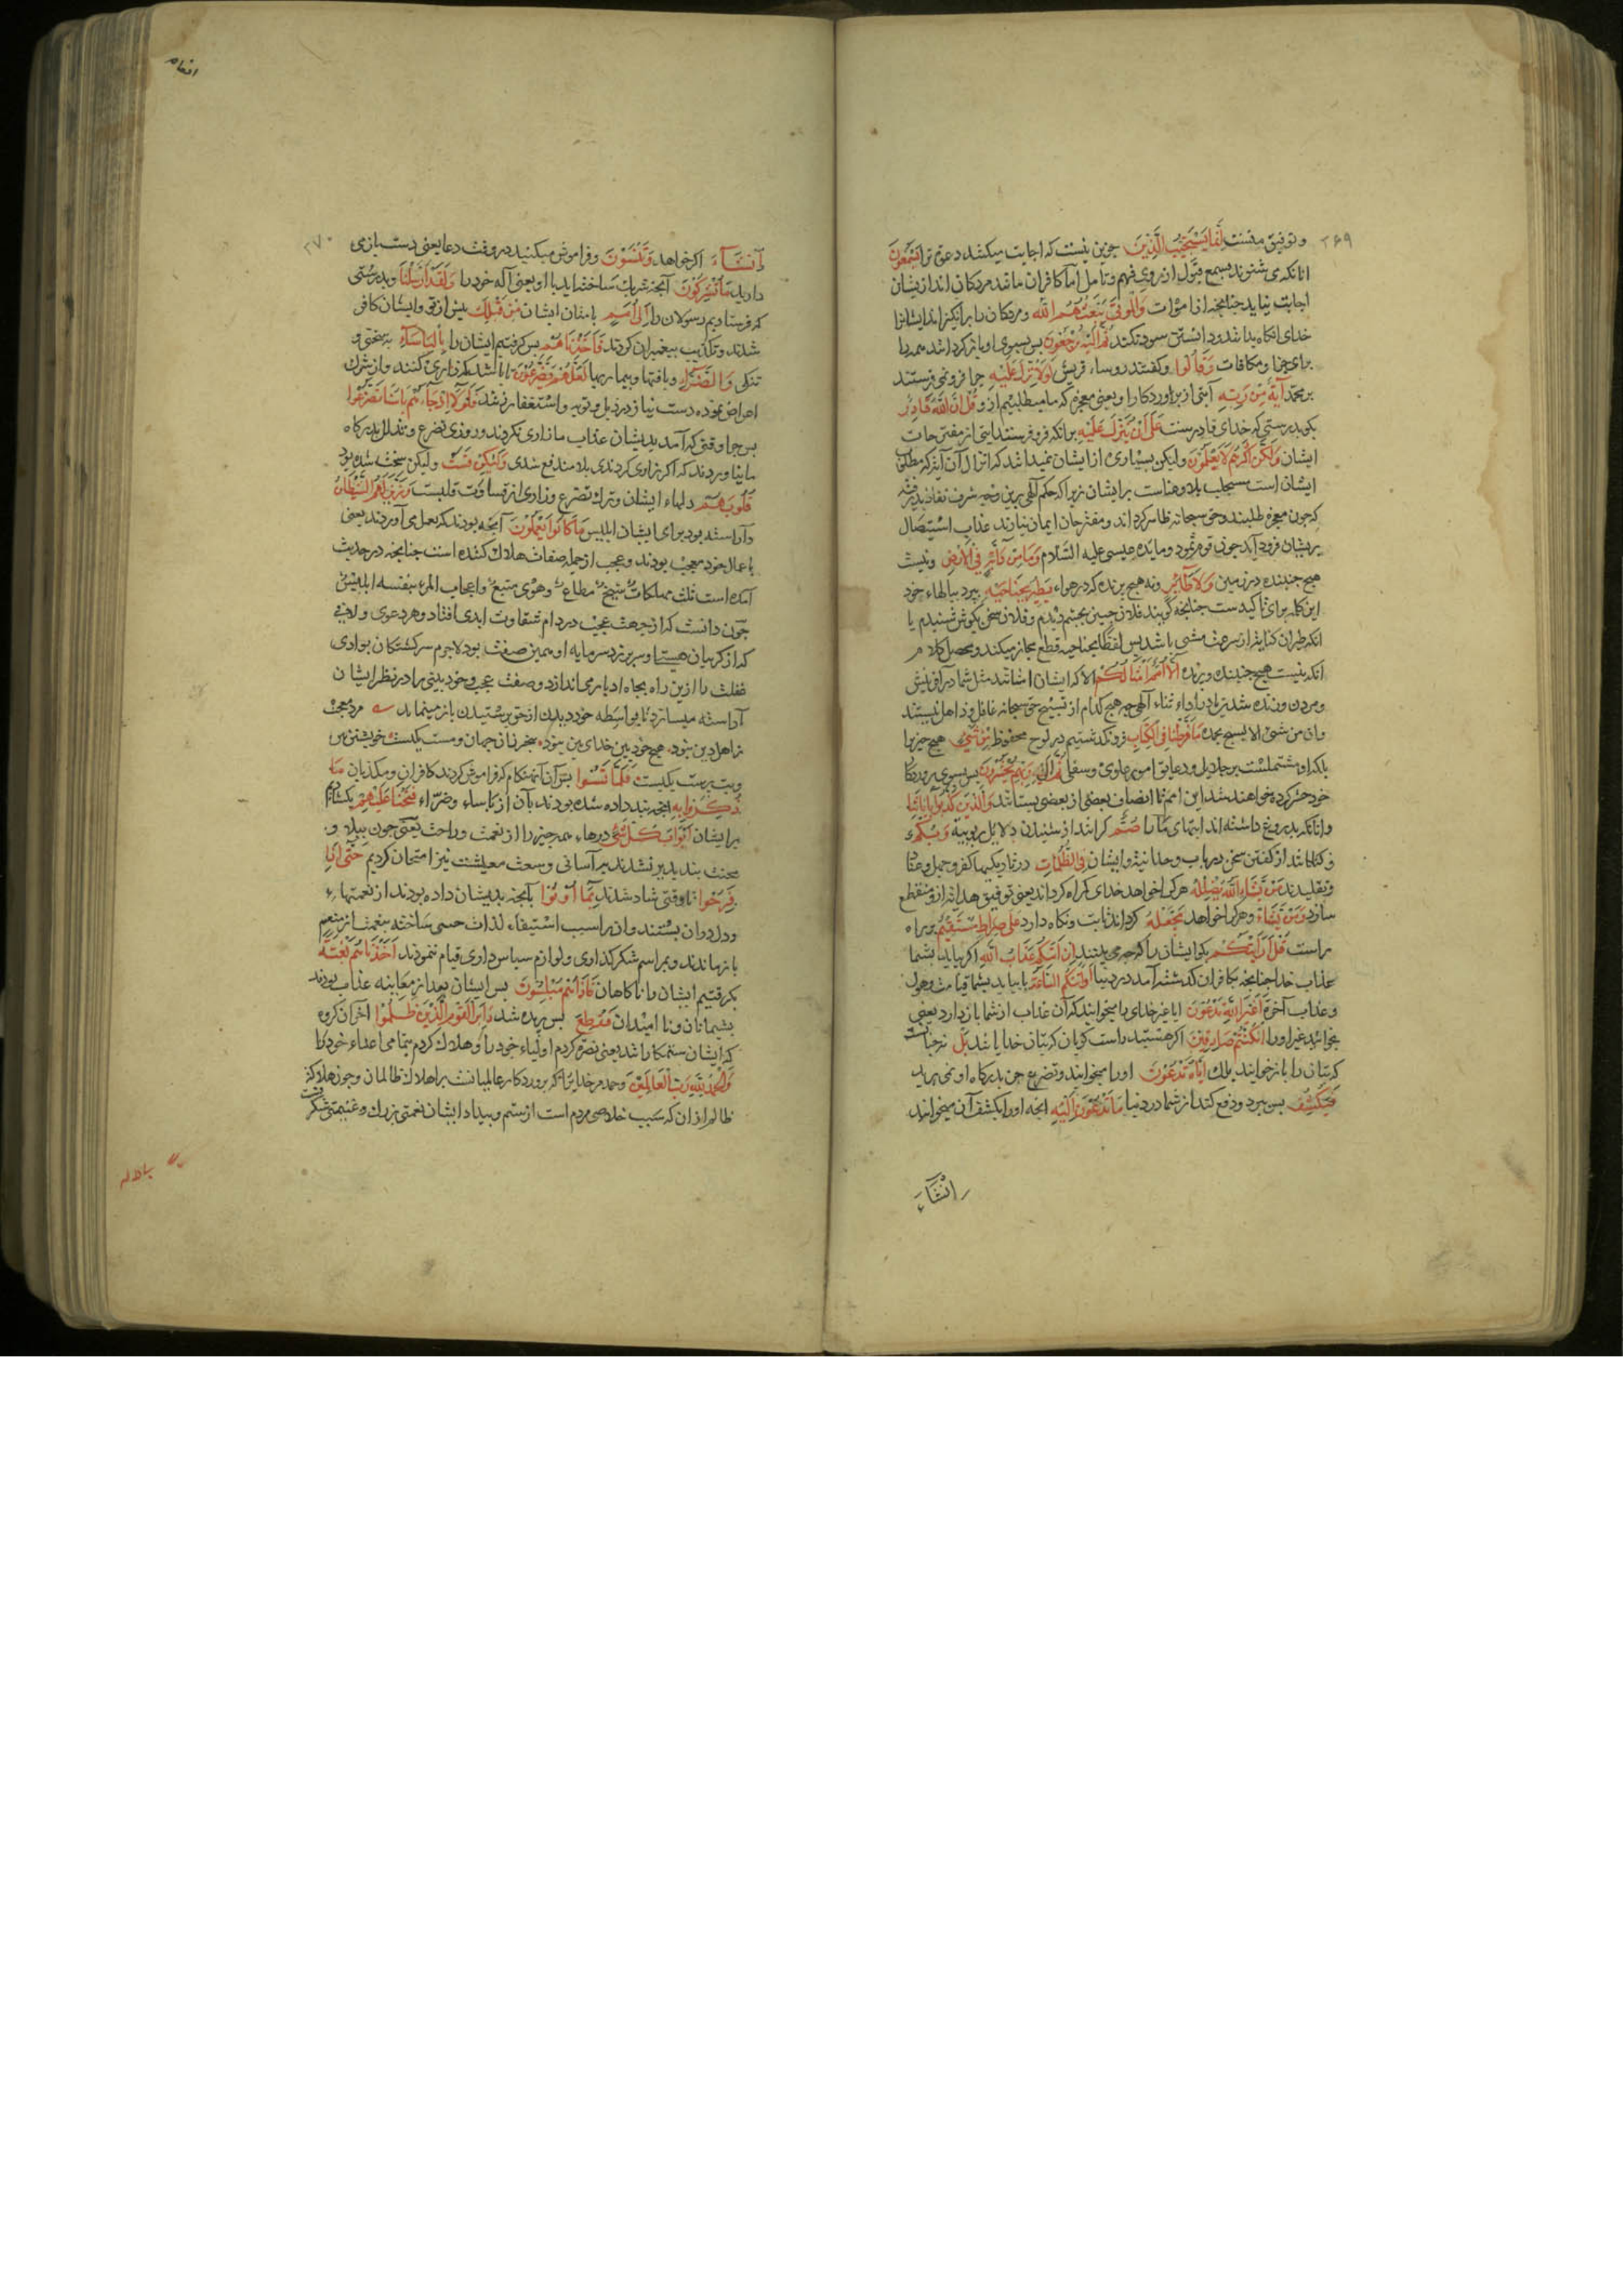 ۲۶۹
و توفیق منست اِنَّمَا یَسْتَجِیبُ الَّذِینَ جزین نیست که اجابت میکنند دعوة ترا یَسْمَعُونَ
انانکه می شنوند بسمع قبول از روی فهم و تامل اما کافران مانند مردکان اند ازیشان
اجابت نیاید چنانچه از اموات وَالْمَوْتَی یَبْعَثُهُمُ الله و مردکان را برانکیزاند ایشانرا
خدای انکاه بدانند و دانستن سود نکند ثُمَّ اِلَیْهِ یُرْجَعُونَ پس بسوی او باز کردانند همه را
برای جزا و مکافات وَقَالُوا و کفتند روساء قریش لَوْلَا نُزِّلَ عَلَیْهِ چرا فرو نمی فرستند
بر محمد آیَةٌ مِنْ رَبِّهِ آیتی از پروردکار او یعنی معجزه که ما میطلبیم ازو قُلْ اِنَّ اللهَ قَادِرٌ
بکو بدرستی که خدای قادرست عَلَی اَنْ یُنَزِّلَ عَلَیْهِ برانکه فرو فرستد ایتی از مقترحات
ایشان وَلَکِنَّ اَکْثَرَهُمْ لَا یَعْلَمُونَ ولیکن بسیاری از ایشان نمیدانند که انزال آن آیتی که مطلوب
ایشان است مستجلب بلا و عناست برایشان زیرا که حکم الهی برین وجه شرف نفاذ پذیرفته
که چون معجزه طلبند و حق سبحانه ظاهر کرداند و مقترحان ایمان نیارند عذاب استیصال
بریشان فرود آید چون قوم ثمود و مایده عیسی علیه السلام وَمَا مِنْ دَابَّةٍ فِی الْاَرْضِ و نیست
هیچ جنبنده در زمین وَلَا طَائِرٍ و نه هیچ پرنده که در هواء یَطِیرُ بِجَنَاحَیْهِ بپرد ببالهاء خود
این کلمه برای تاکیدست چنانچه گویند فلان چیز بچشم دیدم و فلان سخن بکوش شنیدم یا
انکه طیران کنایتاز سرعت مشی باشد پس لفظ بجناحیه قطع مجاز میکند و محصل کلام
انکه نیست هیچ جنبنده و پرنده اِلَّا اُمَمٌ اَمْثَالُکُمْ الا که ایشان امتانند مثل شما در آفرینش
و مردن و زنده شدن یا در اداء ثناء الهی چه هیچ کدام از تسبیح حق سبحانه غافل و ذاهل نیستند
وان من شئ الا یسبح بحمده مَا فَرَّطْنَا فِی الْکِتَابِ فرو نکذاشتیم در لوح محفوظ مِنْ شَیْءٍ هیچ چیز را
بلکه او مشتملست بر جلایل و دقایق امور علوی و سفلی ثُمَّ اِلَی رَبِّهِمْ یُحْشَرُونَ پس بسوی پروردکار
خود حشر کرده خواهند شد این امم تا انصاف بعضی از بعضی بستانند وَالَّذِینَ کَذَّبُوا بِآیَاتِنَا
وانانکه بدروغ داشته اند ایتهای ما را صُمٌّ کرانند از شنیدن دلایل ربوبیة وَبُکْمٌ
و کنکانند از کفتن سخن در باب وحدانیة و ایشان فِی الظُّلُمَاتِ در تاریکیهاء کفر و جهل و عناد
و تقلیدند مَنْ یَشَاءِ اللهُ یُضْلِلْهُ هر کرا خواهد خدای کمراه کرداند یعنی توفیق هدایة ازو منقطع
سازد وَمَنْ یَشَاْ و هر کرا خواهد یَجْعَلْهُ کرداند ثابت و نکاه دارد عَلَی صِرَاطٍ مُسْتَقِیمٍ بر راه
راست قُلْ اَرَاَیْتَکُمْ بکو ایشان را که چه می بینید اِنْ اَتَیکُمْ عَذَابُ اللهِ اکر بیاید بشما
عذاب خدا چنانچه بکافران کذشته آمد در دنیا اَوْ اَتَتْکُمُ السَّاعَةُ یا بیاید بشما قیامت و هول
و عذاب آخرة اَغَیْرَ اللهِ تَدْعُونَ ایا غیر خدای را میخوانید که آن عذاب از شما باز دارد یعنی
بخوانید غیر او را اِنْ کُنْتُمْ صَادِقِینَ اکر هستید راست کویان که بتان خدایانند بَلْ نه چنانست
که بتان را باز خوانید بلک اِیَّاهُ تَدْعُونَ او را میخوانید و تضرع جز بدرکاه او نمی برید
فَیَکْشِفُ پس ببرد و دفع کند از شما در دنیا مَا تَدْعُونَ اِلَیْهِ انچه او را بکشف آن میخوانید
اِنْ شَاءَ
انعام
۲۷۰
اِنْ شَاءَ اکر خواهد وَتَنْسَوْنَ و فراموش میکنید در وقت دعا یعنی دست باز می
دارید مَا تُشْرِکُونَ آنچه شریک ساخته اید با او یعنی آلهه خود را وَلَقَدْ اَرْسَلْنَا و بدرستی
که فرستادیم رسولان را اِلَی اُمَمٍ بامتان ایشان مِنْ قَبْلِکَ پیش از تو و ایشان کافر
شدند و تکذیب پیغمبران کردند فَاَخَذْنَاهُمْ پس کرفتیم ایشان را بِالْبَاْسَاءِ بسختی و
تنکی وَالضَّرَّاءِ و بافتها و بیماریها لَعَلَّهُمْ یَتَضَرَّعُونَ تا باشد که زاری کنند و از شرک
اعراض نموده دست نیاز در ذیل توبه و استغفار زنند فَلَوْلَا اِذْ جَاءَهُمْ بَاْسُنَا تَضَرَّعُوا
پس چرا وقتی که آمد بدیشان عذاب ما زاری نکردند و روزی تضرع و تذلل بدرکاه
ما نیاوردند که اکر زاری کردندی بلا مندفع شدی وَلَکِنْ قَسَتْ ولیکن سخت شده بود
قُلُوبُهُمْ دلهاء ایشان و ترک تضرع و زاری از قساوت قلبست وَزَیَّنَ لَهُمُ الشَّیْطَانُ
و آراسته بود برای ایشان ابلیس مَا کَانُوا یَعْمَلُونَ آنچه بودند که بعمل می آوردند یعنی
باعمال خود معجب بودند و عجب از جمله صفات هلاک کننده است چنانچه در حدیث
آمده است ثلث مهلکات شح مطاع و هوی متبع و اعجاب المرء بنفسه ابلیس
چون دانست که از جهت عجب در دام شقاوت ابدی افتاد و هر دعوی و لافی
که از کریبان هستی او سر برزد سرمایه او همین صفت بود لاجرم سرکشتکان بوادی
غفلت را ازین راه بچاه ادبار می اندازد و صفت عجب و خود بینی را در نظر ایشان
آراسته میسازد تا بواسطه خود دیدن از حق پرستیدن باز مینماید مرد معجب
ز اهل دین نبود هیچ خود بین خدای بین نبود بیخبر زان جهان و مست یکیست خویشتن بین
و بت پرست یکیست فَلَمَّا نَسُوا پس آن هنکام که فراموش کردند کافران و مکذبان مَا
ذُکِّرُوا بِهِ انچه پند داده شده بودند بآن از باساء و ضراء فَتَحْنَا عَلَیْهِمْ بکشادیم
برایشان اَبْوَابَ کُلِّ شَیْءٍ درهاء همه چیز را از نعمت و راحت یعنی چون ببلا و
محنت پند پذیر نشدند بر آسانی و وسعت معیشت نیز امتحان کردیم حَتَّی اِذَا
فَرِحُوا تا وقتی شاد شدند بِمَا اُوتُوا بآنچه بدیشان داده بودند از نعمتهاء
و دل دران بستند و انرا سبب استیفاء لذات حسی ساخته بنعمت از منعم
باز ماندند و بمراسم شکر کذاری و لوازم سپاس داری قیام ننمودند اَخَذْنَاهُمْ بَغْتَةً
بکرفتیم ایشان را ناکاهان فَاِذَا هُمْ مُبْلِسُونَ پس ایشان بعد از معاینه عذاب بودند
پشیمانان و نا امیدان فَقُطِعَ پس بریده شد دَابِرُ الْقَوْمِ الَّذِینَ ظَلَمُوا آخر آن کروه
که ایشان ستمکارانند یعنی نصرة کردم اولیاء خود را و هلاک کردم تمامی اعداء خود را
وَالْحَمْدُ لِلَّهِ رَبِّ الْعَالَمِینَ و حمد مر خدایرا که پروردکار عالمیانست بر اهلاک ظالمان و چون هلاک
ظالم ازان که سبب خلاصی مردم است از ستم و بیداد ایشان نعمتی بزرک و غنیمتی شکرفست